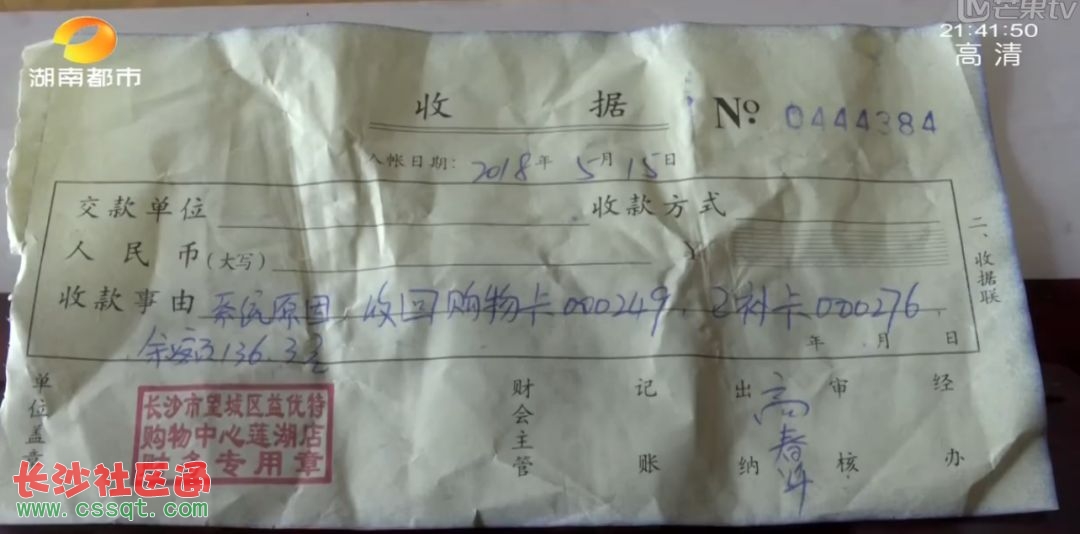 湖南都市
芒果tv
21:41:50
高清
收据
No. 0444384
入帐日期：2018年5月15日
交款单位 收款方式
人民币（大写） ¥
收款事由 系统原因，收回购物卡000249，已补卡000276
余额136.3元
年 月 日
二、收据联
单位盖章 财会主管 记账 出纳 审核 经办
高春
长沙市望城区益优特
购物中心莲湖店
财务专用章
长沙社区通
www.cssqt.com